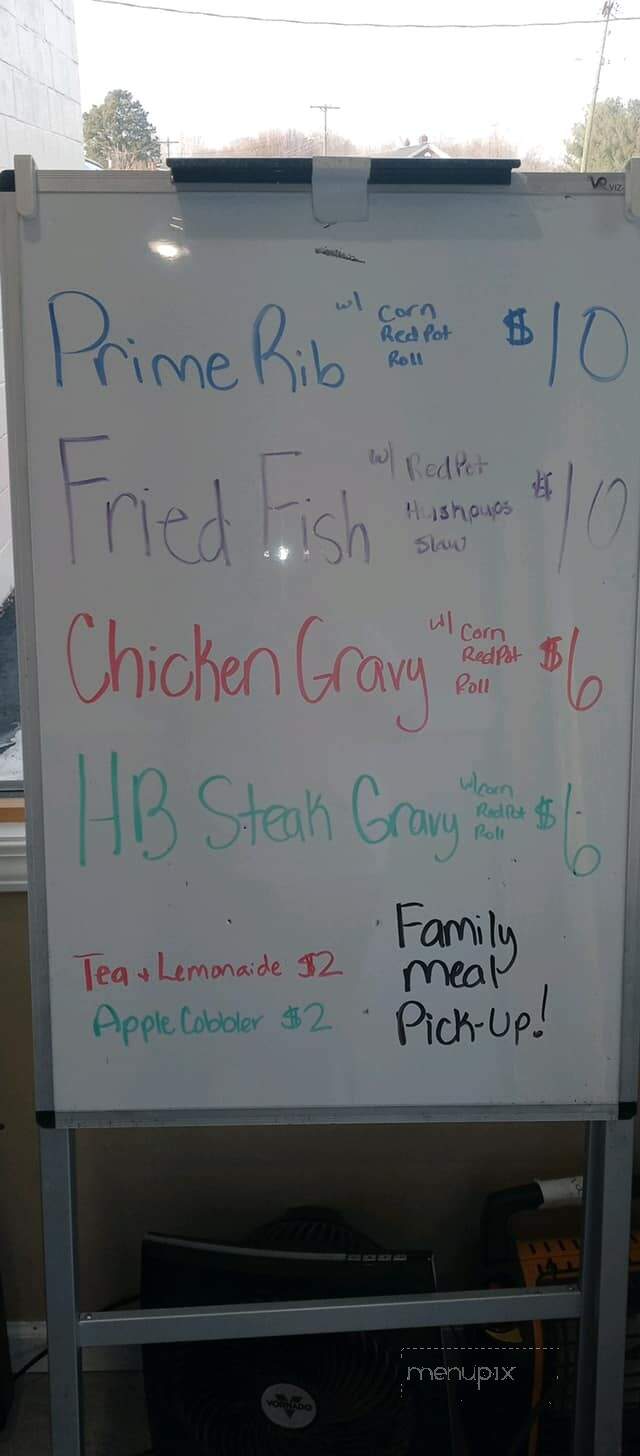 Prime Rib w/ Corn $10
Red Pot
Roll
Fried Fish w/ Red Pot $10
Hushpups
Slaw
Chicken Gravy w/ Corn $6
Red Pot
Roll
HB Steak Gravy w/ corn $6
Red Pot
Roll
Tea + Lemonaide $2
Apple Cobbler $2
Family
meal
Pick-Up!
VORNADO
menupix